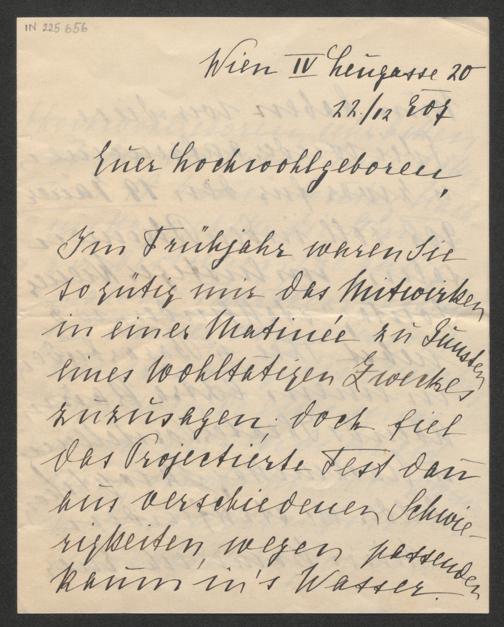 IN 225 656
Wien IV Heugasse 20
22./12 907
Euer Hochwohlgeboren,
Im Frühjahr waren Sie
so gütig mir das Mitwirken
in einer Matinée zu Gunsten
eines wohltätigen Zweckes
zuzusagen; doch fiel
das Projectierte Fest dan
aus verschiedenen Schwie-
rigkeiten, wegen passenden
Raum, in's Wasser.